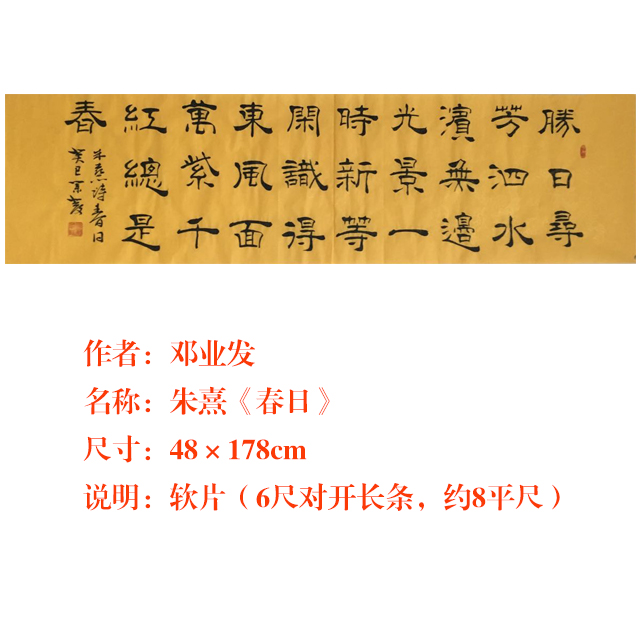 勝日尋
芳泗水
濱無邊
光景一
時新等
閑識得
東風面
萬紫千
紅總是
春
朱熹詩春日
癸巳
作者：邓业发
名称：朱熹《春日》
尺寸：48×178cm
说明：软片（6尺对开长条，约8平尺）